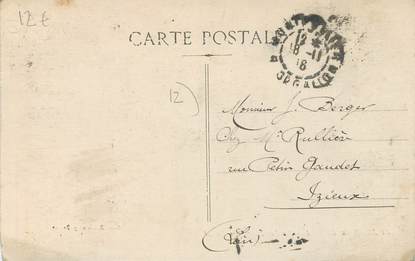 12 €
CARTE POSTALE
12
18-11
16
12)
Monsieur J. Berger
Chez Mr Rullière
rue Petin Gaudet
Izieux
(Loire)